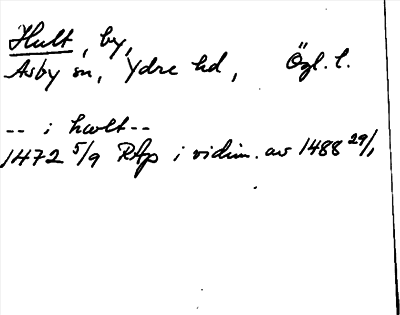 Hult, by,
Asby sn, Ydre hd, Ögl. l.
-- i hwlt--
1472 5/9 RAp i vidim. av 1488 29/1